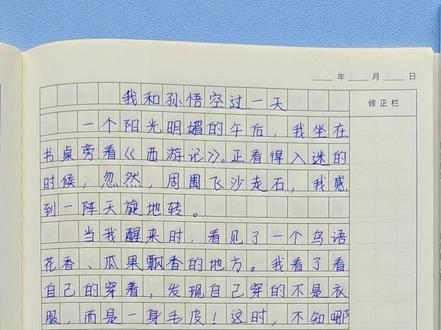 年 月 日
修正栏
我和孙悟空过一天
一个阳光明媚的午后，我坐在
书桌旁看《西游记》。正看得入迷的
时候，忽然，周围飞沙走石，我感
到一阵天旋地转。
当我醒来时，看见了一个鸟语
花香、瓜果飘香的地方。我看了看
自己的穿着，发现自己穿的不是衣
服，而是一身毛皮！这时，不知哪